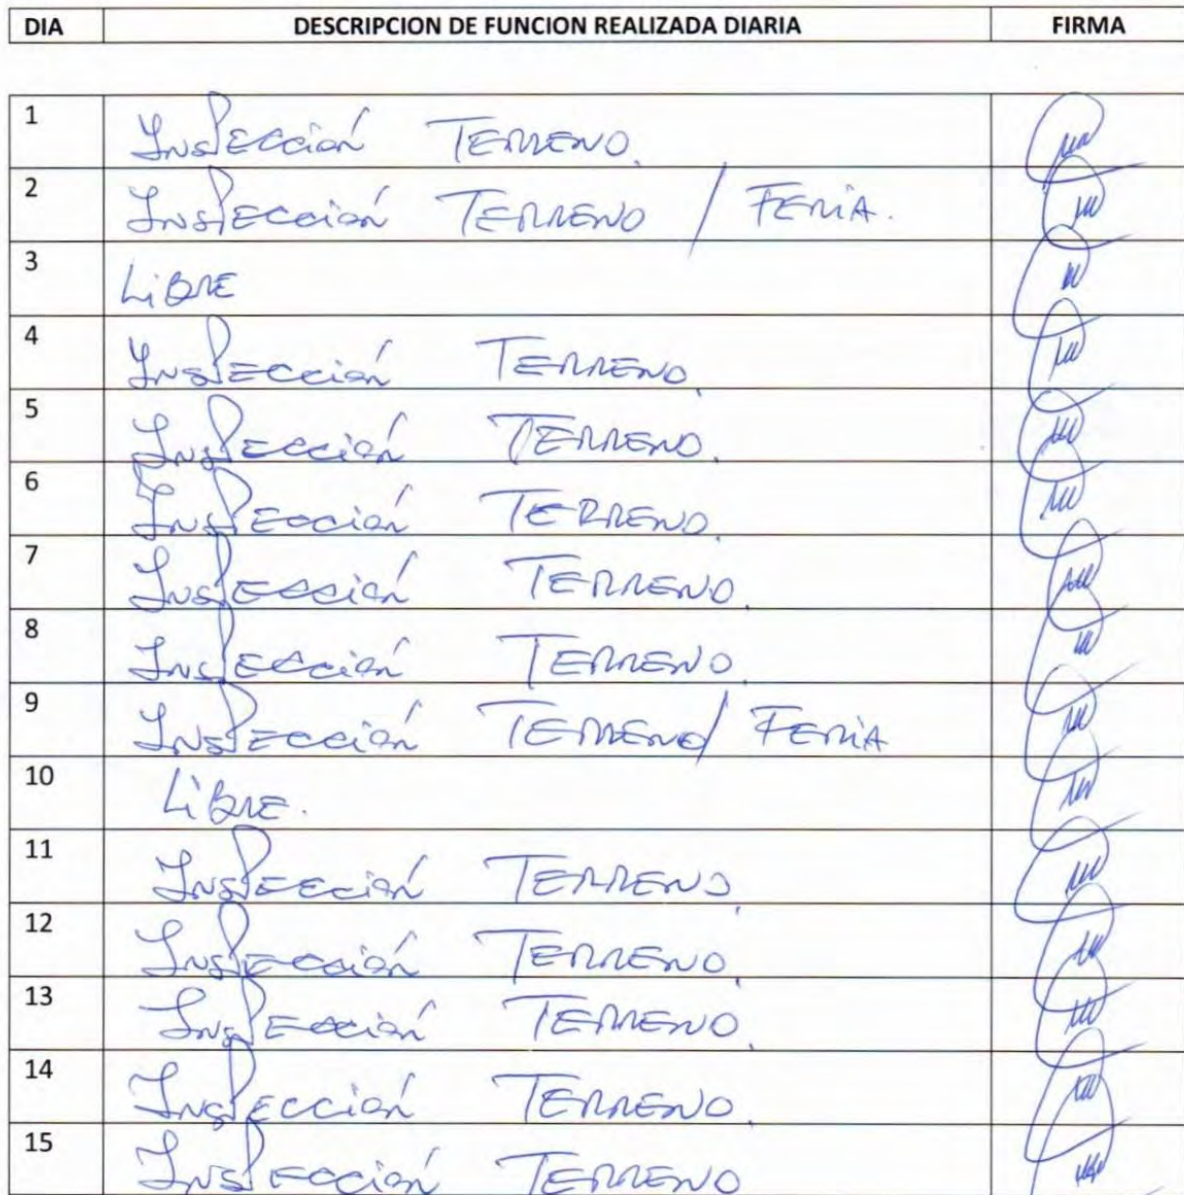 DIA DESCRIPCION DE FUNCION REALIZADA DIARIA FIRMA
1 Inspección Terreno.
2 Inspección Terreno / Feria.
3 Libre
4 Inspección Terreno.
5 Inspección Terreno.
6 Inspección Terreno.
7 Inspección Terreno.
8 Inspección Terreno.
9 Inspección Terreno / Feria
10 Libre.
11 Inspección Terreno.
12 Inspección Terreno.
13 Inspección Terreno.
14 Inspección Terreno.
15 Inspección Terreno